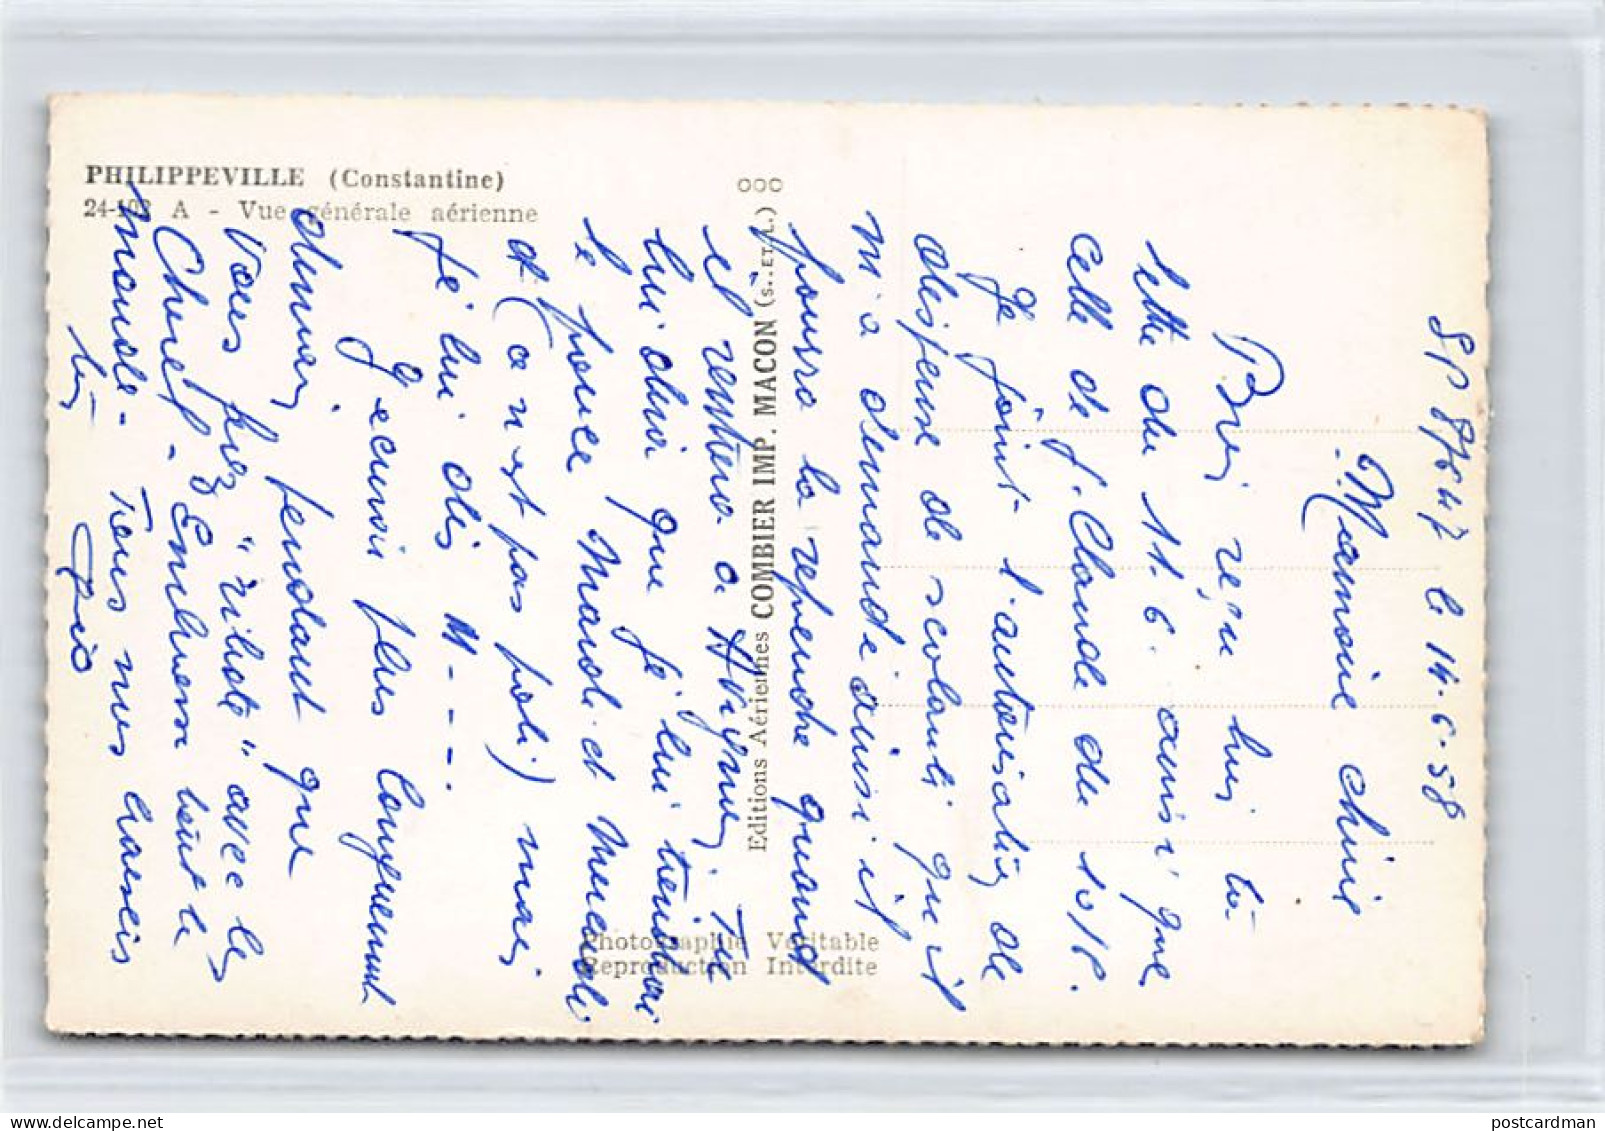 PHILIPPEVILLE (Constantine)
24-103 A - Vue générale aérienne
ooo
Editions Aériennes COMBIER IMP. MACON (S.-ET-L.)
Photographie Véritable
Reproduction Interdite
SP 87647 le 14.6.58
Mamoie chérie
Bien reçu hier ta
lettre du 11.6. ainsi que
celle de J. Claude du 10/6.
Je joint l'autorisation de
dispense de scolarité qu'il
m'a demandé ainsi il
pourra la reprendre quand
il rentrera à Avignon Tu
lui diras que je lui tiendrai
le pouce Mardi et Mercredi
et (ce n'est pas poli) mais
je lui dis M - - - -.
J'écrirai plus longuement
demain pendant que
vous ferez "ribote" avec les
Chief - Embrasse tout le
monde - Tous mes baisers